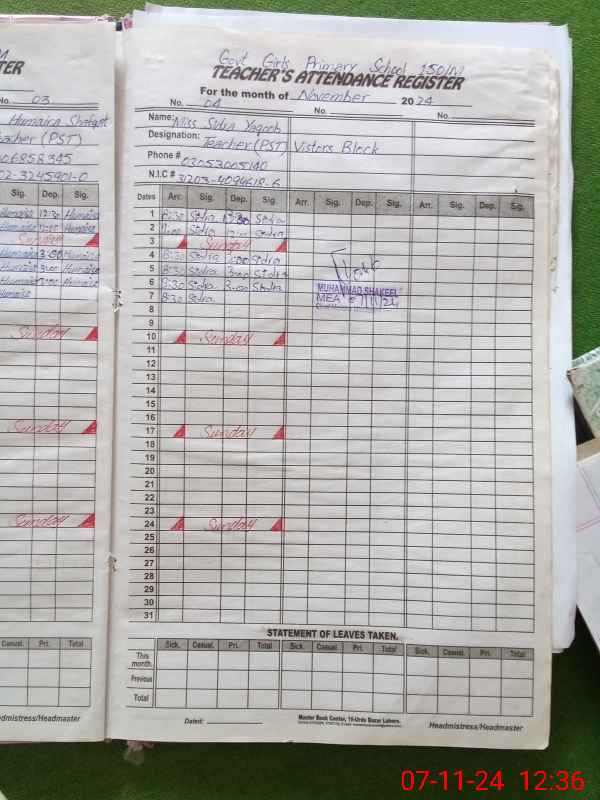 TER
No. 03
Humaira Shafqat
Teacher (PST)
06858345
02-3245901-0
Sig. Dep. Sig.
Humaira 12:30 Humaira
Sunday
Humaira 3:00 Humaira
Humaira 3:00 Humaira
Humaira 3:00 Humaira
Humaira
Sunday
Sunday
Sunday
Casual. Pri. Total
admistress/Headmaster
Govt Girls Primary School 150/NI
TEACHER'S ATTENDANCE REGISTER
For the month of November 2024
No. 04 No. No.
Name: Miss Sidra Yaqoob
Designation: Teacher (PST) Vistors Block
Phone # 03053005140
N.I.C # 31203-4094618-6
Dates Arr. Sig. Dep. Sig. Arr. Sig. Dep. Sig. Arr. Sig. Dep. Sig.
1 8:30 Sidra 12:30 Sidra
2 Sidra Sidra
3 Sunday
4 8:30 Sidra 3:00 Sidra
5 8:30 Sidra 3:00 Sidra
6 8:30 Sidra 3:00 Sidra
7 8:30 Sidra
MUHAMMAD SHAKEEL
MEA
8
9
10 Sunday
11
12
13
14
15
16
17 Sunday
18
19
20
21
22
23
24 Sunday
25
26
27
28
29
30
31
STATEMENT OF LEAVES TAKEN.
Sick. Casual. Pri. Total Sick. Casual. Pri. Total Sick. Casual. Pri. Total
This month.
Previous
Total
Dated:
Master Book Center, 19-Urdu Bazar Lahore.
Headmistress/Headmaster
07-11-24 12:36